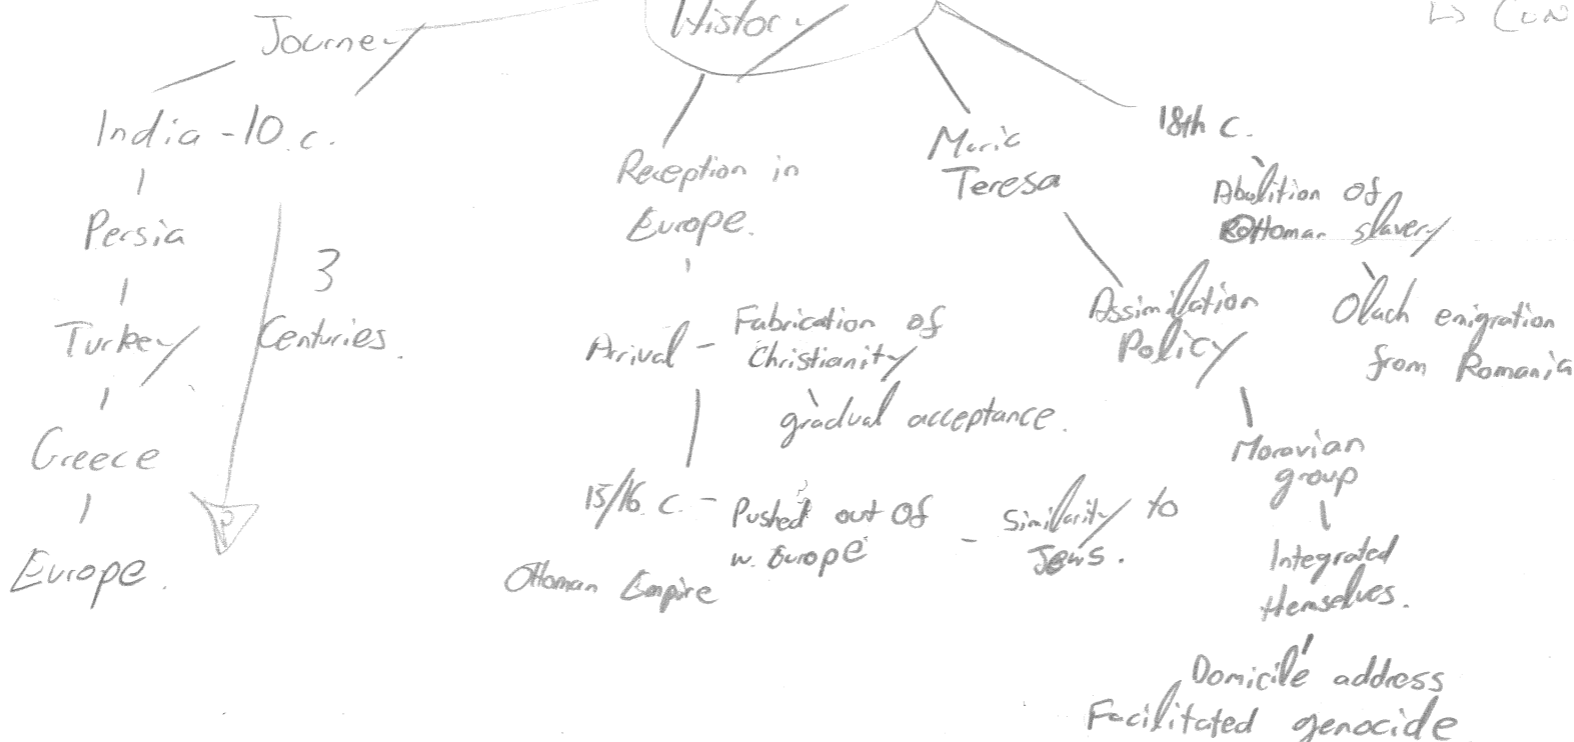 Journey
History
India - 10. c.
Persia
Turkey
Greece
Europe.
3
Centuries.
Reception in
Europe.
Arrival - Fabrication of
Christianity
gradual acceptance.
15/16 c. - Pushed out of
w. Europe
- Similarity to
Jews.
Ottoman Empire
Maria
Teresa
Assimilation
Policy
Moravian
group
Integrated
themselves.
Domicile address
Facilitated genocide
18th c.
Abolition of
Ottoman slavery
Olach emigration
from Romania